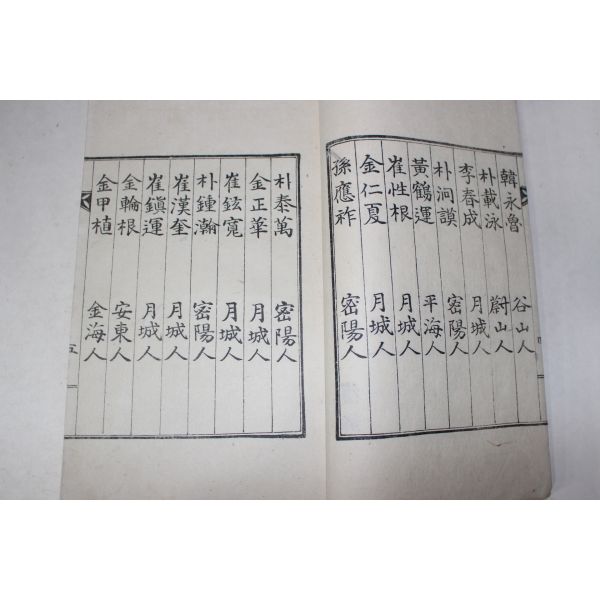 韓永魯 谷山人
朴載泳 蔚山人
李春成 月城人
朴泂謨 密陽人
黃鶴運 平海人
崔性根 月城人
金仁夏 月城人
孫應祚 密陽人
朴泰萬 密陽人
金正華 月城人
崔鉉寬 月城人
朴鍾瀚 密陽人
崔漢奎 月城人
崔鎭運 月城人
金輪根 安東人
金甲植 金海人
五